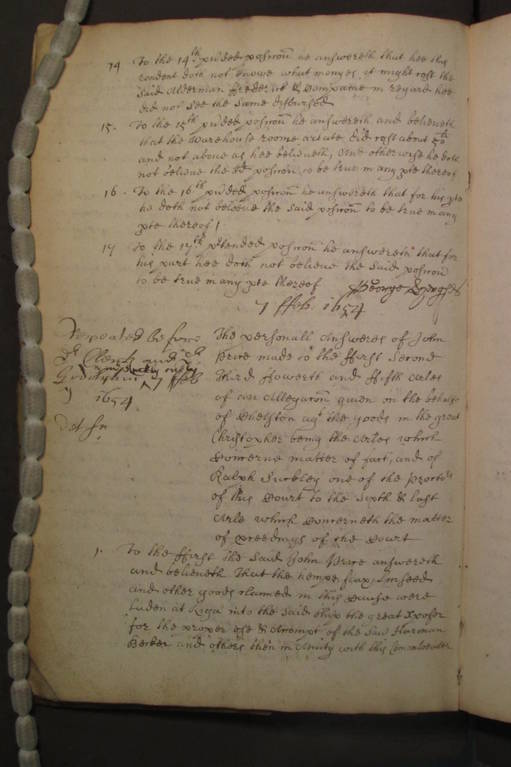 14 To the 14th p̃tded posicõn he answereth that hee this
rondent doth not knowe what monyes it might cost the
said Alderman Frederick & Companie in regard hee
did not see the same disbursed
15. To the 15th p̃tded posicõn he answereth and beleiveth
that the warehouse roome arlate did cost about
and not above as hee beleiveth, And otherwise he doth
not beleive the sd posicõn to be true in any pte thereof
16. To the 16th p̃tded posicõn he answereth that for his pte
he doth not beleeve the said posicõn to be true in any
pte thereof
17 To the 17th p̃tended posicõn he answereth that for
his part hee doth not beleive the said posicõn
to be true in any pte thereof
George
7 ffeb. 1654
Repeated before
Clerk and
Godolphin 7 ffeb
1654
The personall Answeres of John
Price made to the ffirst second
third fowerth and ffifth Arles
of an Allegacõn given on the behalfe
of agt the goods in the great
Christopher being the Arles which
concerne matter of fact, and of
Ralph Suckley one of the Proctrs
of this Court to the sixth & last
Arle which concerneth the matter
of proceedings of the Court
1. To the ffirst the said John Price answereth
and beleiveth That the hempe flax Linseed
and other goods clamed in this Cause were
laden at Riga into the said shipp the great Xpofer
for the proper use & Accompt of the said Harman
Becker and others then in Amity with this Comonwealth